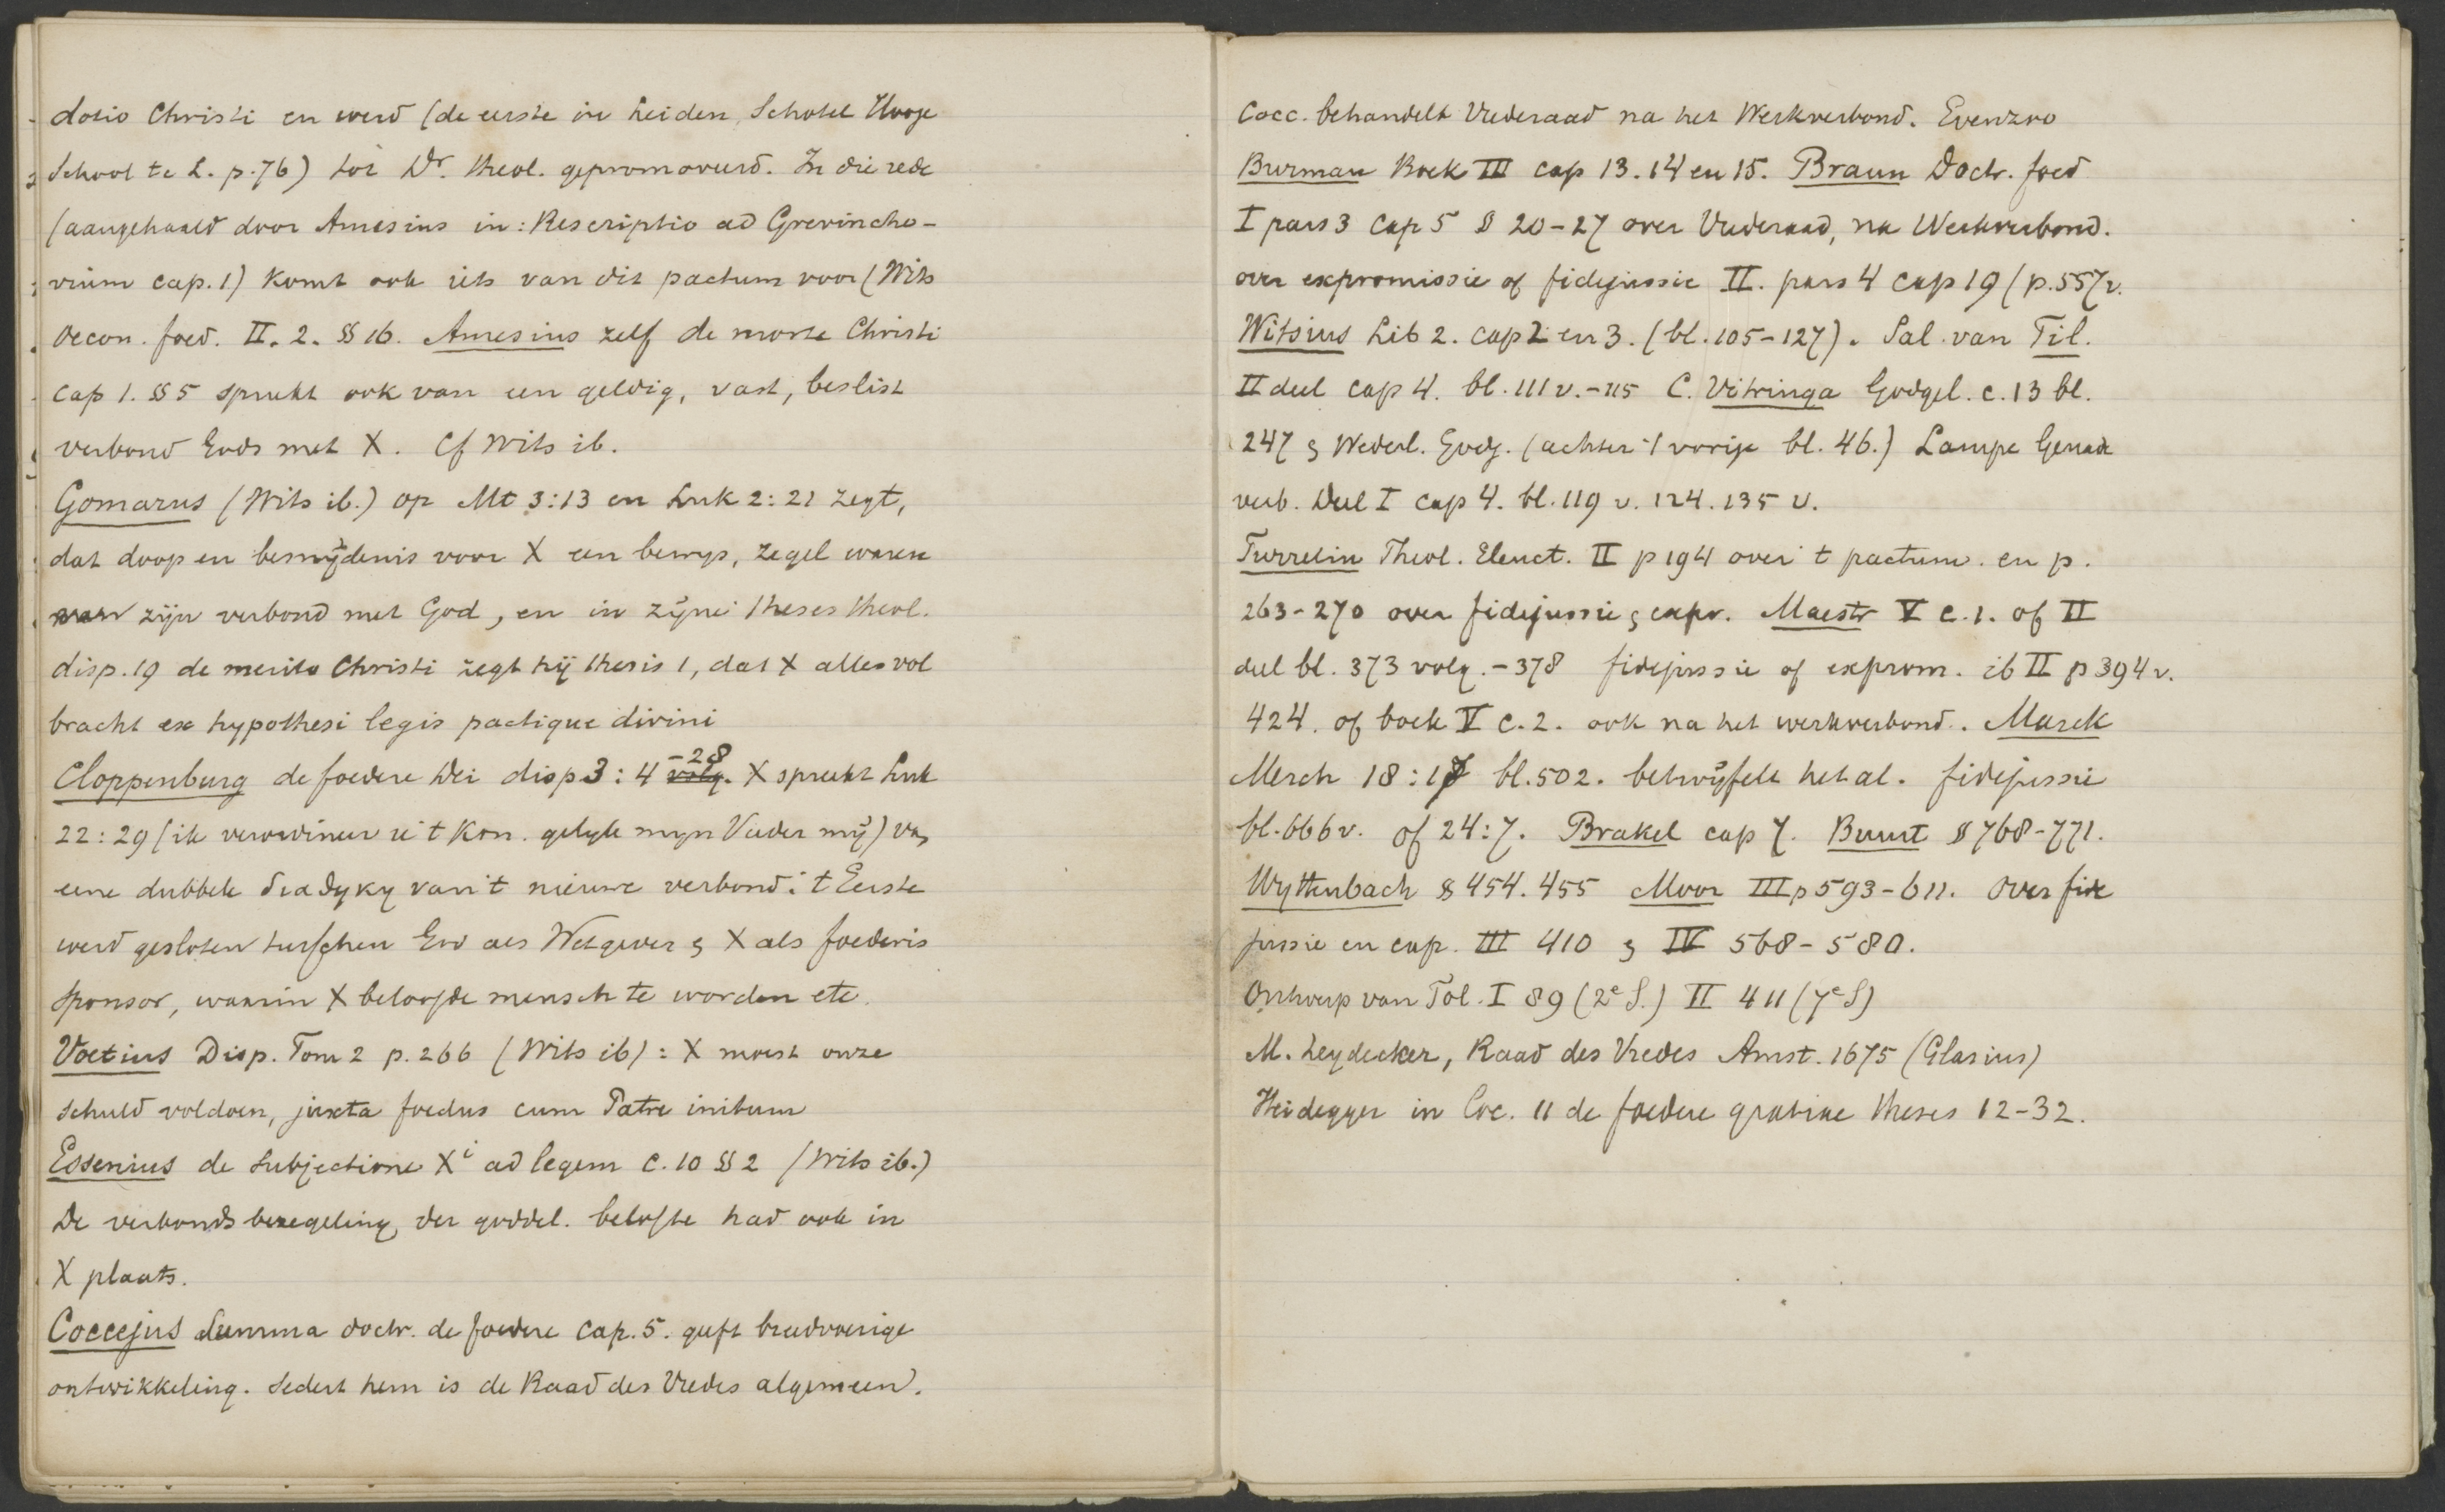 dotio Christi en werd (de eerste in Leiden, Schotel Hooge
School te L. p. 76) tot Dr. theol. gepromoveerd. In die rede
(aangehaald door Amesius in: Rescriptio ad Grevincho-
vium cap. 1) komt ook iets van dit pactum voor (Wits
Oecon. foed. II. 2. §§ 16. Amesius zelf de morte Christi
cap 1. §§ 5 spreekt ook van een geldig, vast, beslist
verbond Gods met X. Cf Wits ib.
Gomarus (Wits ib.) op Mt 3:13 en Luk 2:21 zegt,
dat doop en besnijdenis voor X een bewijs, zegel waren
van zijn verbond met God, en in zijne theses theol.
disp. 19 de merito Christi zegt hij thesis 1, dat X alles vol
bracht ex hypothesi legis pactique divini
Cloppenburg de foedere Dei disp 3: 4 volg. -28 X spreekt Luk
22:29 (ik verordineer u 't Kon. gelijk mijn Vader mij) van
eene dubbele diadyky van 't nieuwe verbond: 't Eerste
werd gesloten tusschen God als Wetgever & X als foederis
sponsor, waarin X beloofde mensch te worden etc.
Voetius Disp. Tom 2 p. 266 (Wits ib): X moest onze
schuld voldoen, juxta foedus cum Patre initum
Essenius de subjectione Xi ad legem C. 10 §§ 2 (Wits ib.)
De verbondsbezegeling der goddel. belofte had ook in
X plaats.
Coccejus Summa doctr. de foedere Cap. 5. geeft breedvoerige
ontwikkeling. Sedert hem is de Raad des Vredes algemeen.
Cocc. behandelt Vrederaad na het Werkverbond. Evenzoo
Burman Boek III cap 13. 14 en 15. Braun Doctr. foed
I pars 3 Cap 5 § 20-27 over Vrederaad, na Werkverbond.
over expromissie of fidejussie II. pars 4 cap 19 (p. 557 v.
Witsius Lib 2. cap 2 en 3. (bl. 105-127). Sal. van Til.
II deel cap 4. bl. 111 v. - 115 C. Vitringa Godgel. c. 13 bl.
247 & Wederl. Godg. (achter 't vorige bl. 46.) Lampe Genade
verb. Deel I cap 4. bl. 119 v. 124. 135 v.
Turretin Theol. Elenct. II p 194 over 't pactum. en p.
263-270 over fidejussie & expr. Maestr V c. 1. of II
deel bl. 373 volg. - 378 fidejussie of exprom. ib II p 394 v.
424. of boek V c. 2. ook na het werkverbond. Marck
Merch 18:17 bl. 502. betwijfelt het al. fidejussie
bl. 666 v. of 24:7. Brakel cap 7. Buurt § 768-771.
Wyttenbach § 454. 455 Moor III p 593-611. Over fide
jussie en exp. III 410 & IV 568-580.
Ontwerp van Tol. I 89 (2e S.) II 411 (7e S)
M. Leydecker, Raad des Vredes Amst. 1675 (Glasius)
Heidegger in Loc. 11 de foedere gratiae theses 12-32.